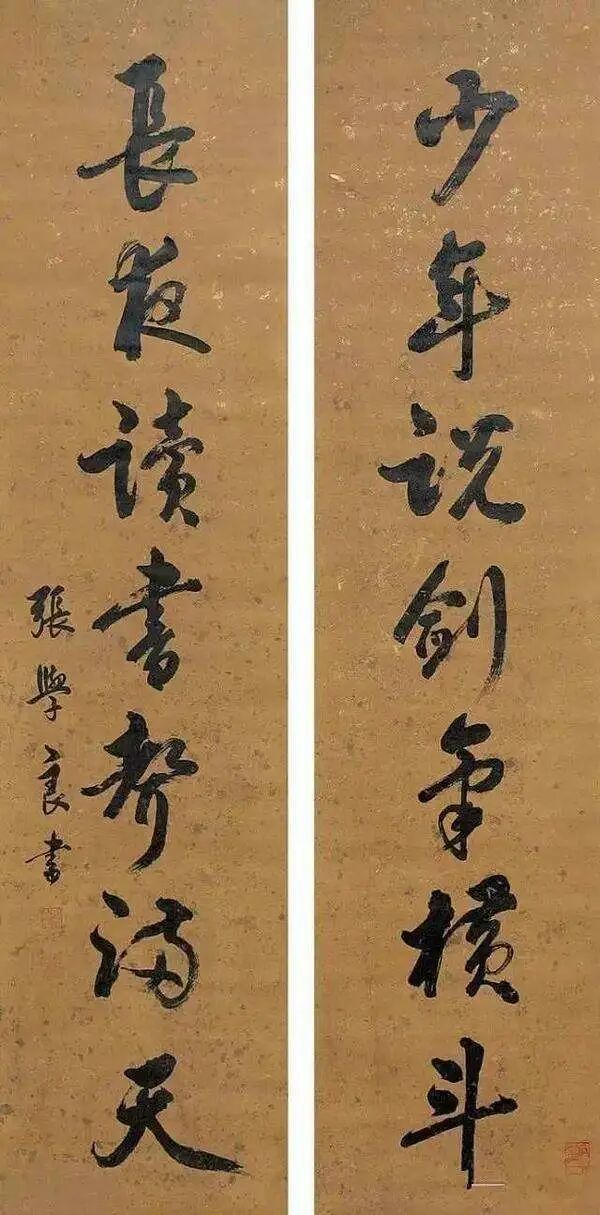 少年説劍氣横斗
長夜讀書聲满天
張學良書